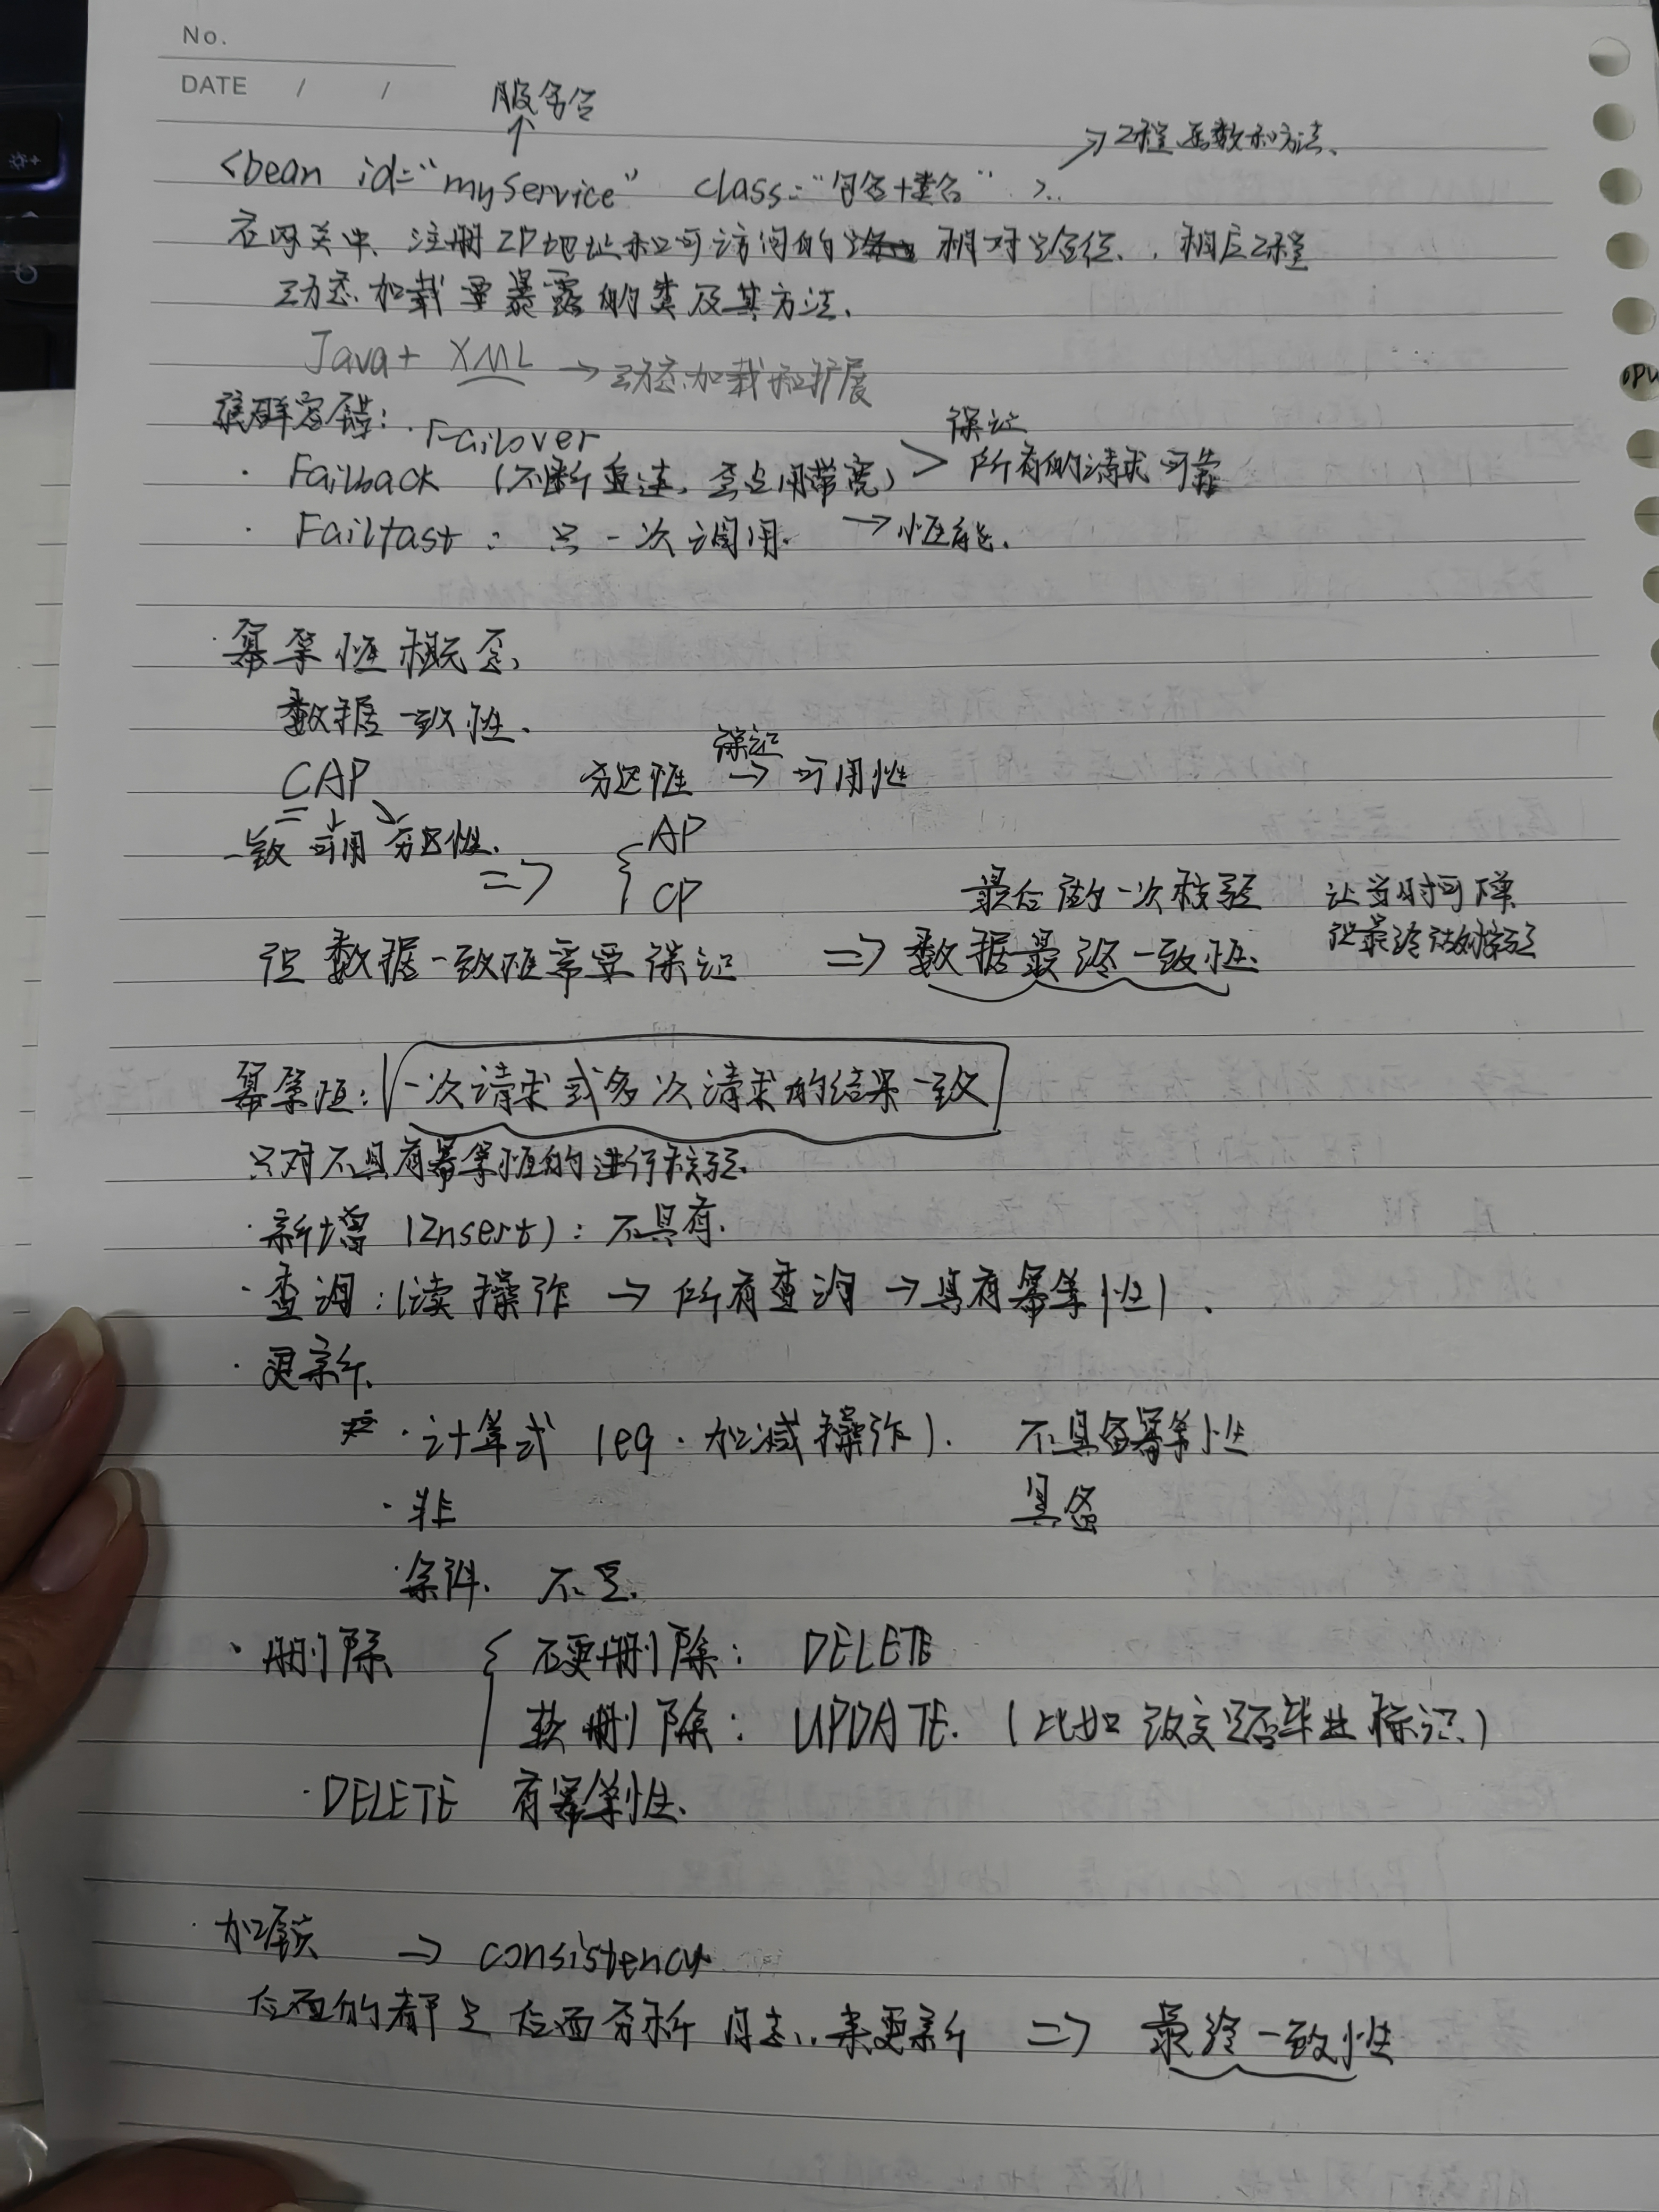 No.
DATE / /
服务名
↑
→ 工程函数和方法、
<bean id="myService" class="包名+类名" >..
在网关中、注册IP地址和可访问的 相对路径、. 相应工程
动态加载要暴露的类及其方法、
Java+ XML → 动态加载和扩展
集群容错: · Failover
· Failback (不断重连, 会占用带宽) > 保证 所有的请求可靠
· Failfast : 只一次调用. → 性能.
· 幂等性概念、
数据一致性.
CAP 分区性 保证 → 可用性
一致 可用 分区性. => { AP
CP
最后做一次校验 让当时可降
但最终请做校验
但数据一致性需要保证 => 数据最终一致性.
幂等性: 一次请求或多次请求的结果一致
只对不具有幂等性的进行校验.
· 新增 (Insert) : 不具有.
· 查询 : (读操作 → 所有查询 → 具有幂等性) .
· 更新.
· 计算式 (eg. 加减操作). 不具备幂等性
· 非 具备
· 条件. 不是.
· 删除 { 硬删除: DELETE
软删除: UPDATE. (比如改变是否毕业标识.)
· DELETE 有幂等性.
· 加锁 => consistency
后面的都是后面分析日志.. 来更新 => 最终一致性